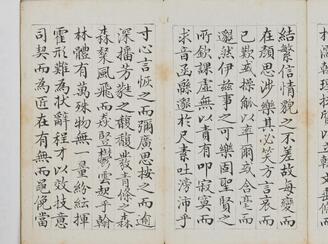 結繁信情貌之不差故每變而
在顏思涉樂其必笑方言哀而
已歎或操觚以率爾或含毫而
邈然伊茲事之可樂固聖賢之
所欽課虛無以責有叩寂寞而
求音函緜邈於尺素吐滂沛乎
寸心言恢之而彌廣思按之而逾
深播芳蕤之馥馥發青條之森
森粲風飛而猋豎鬱雲起乎翰
林體有萬殊物無一量紛紜揮
霍形難為狀辭程才以效技意
司契而為匠在有無而僶俛當